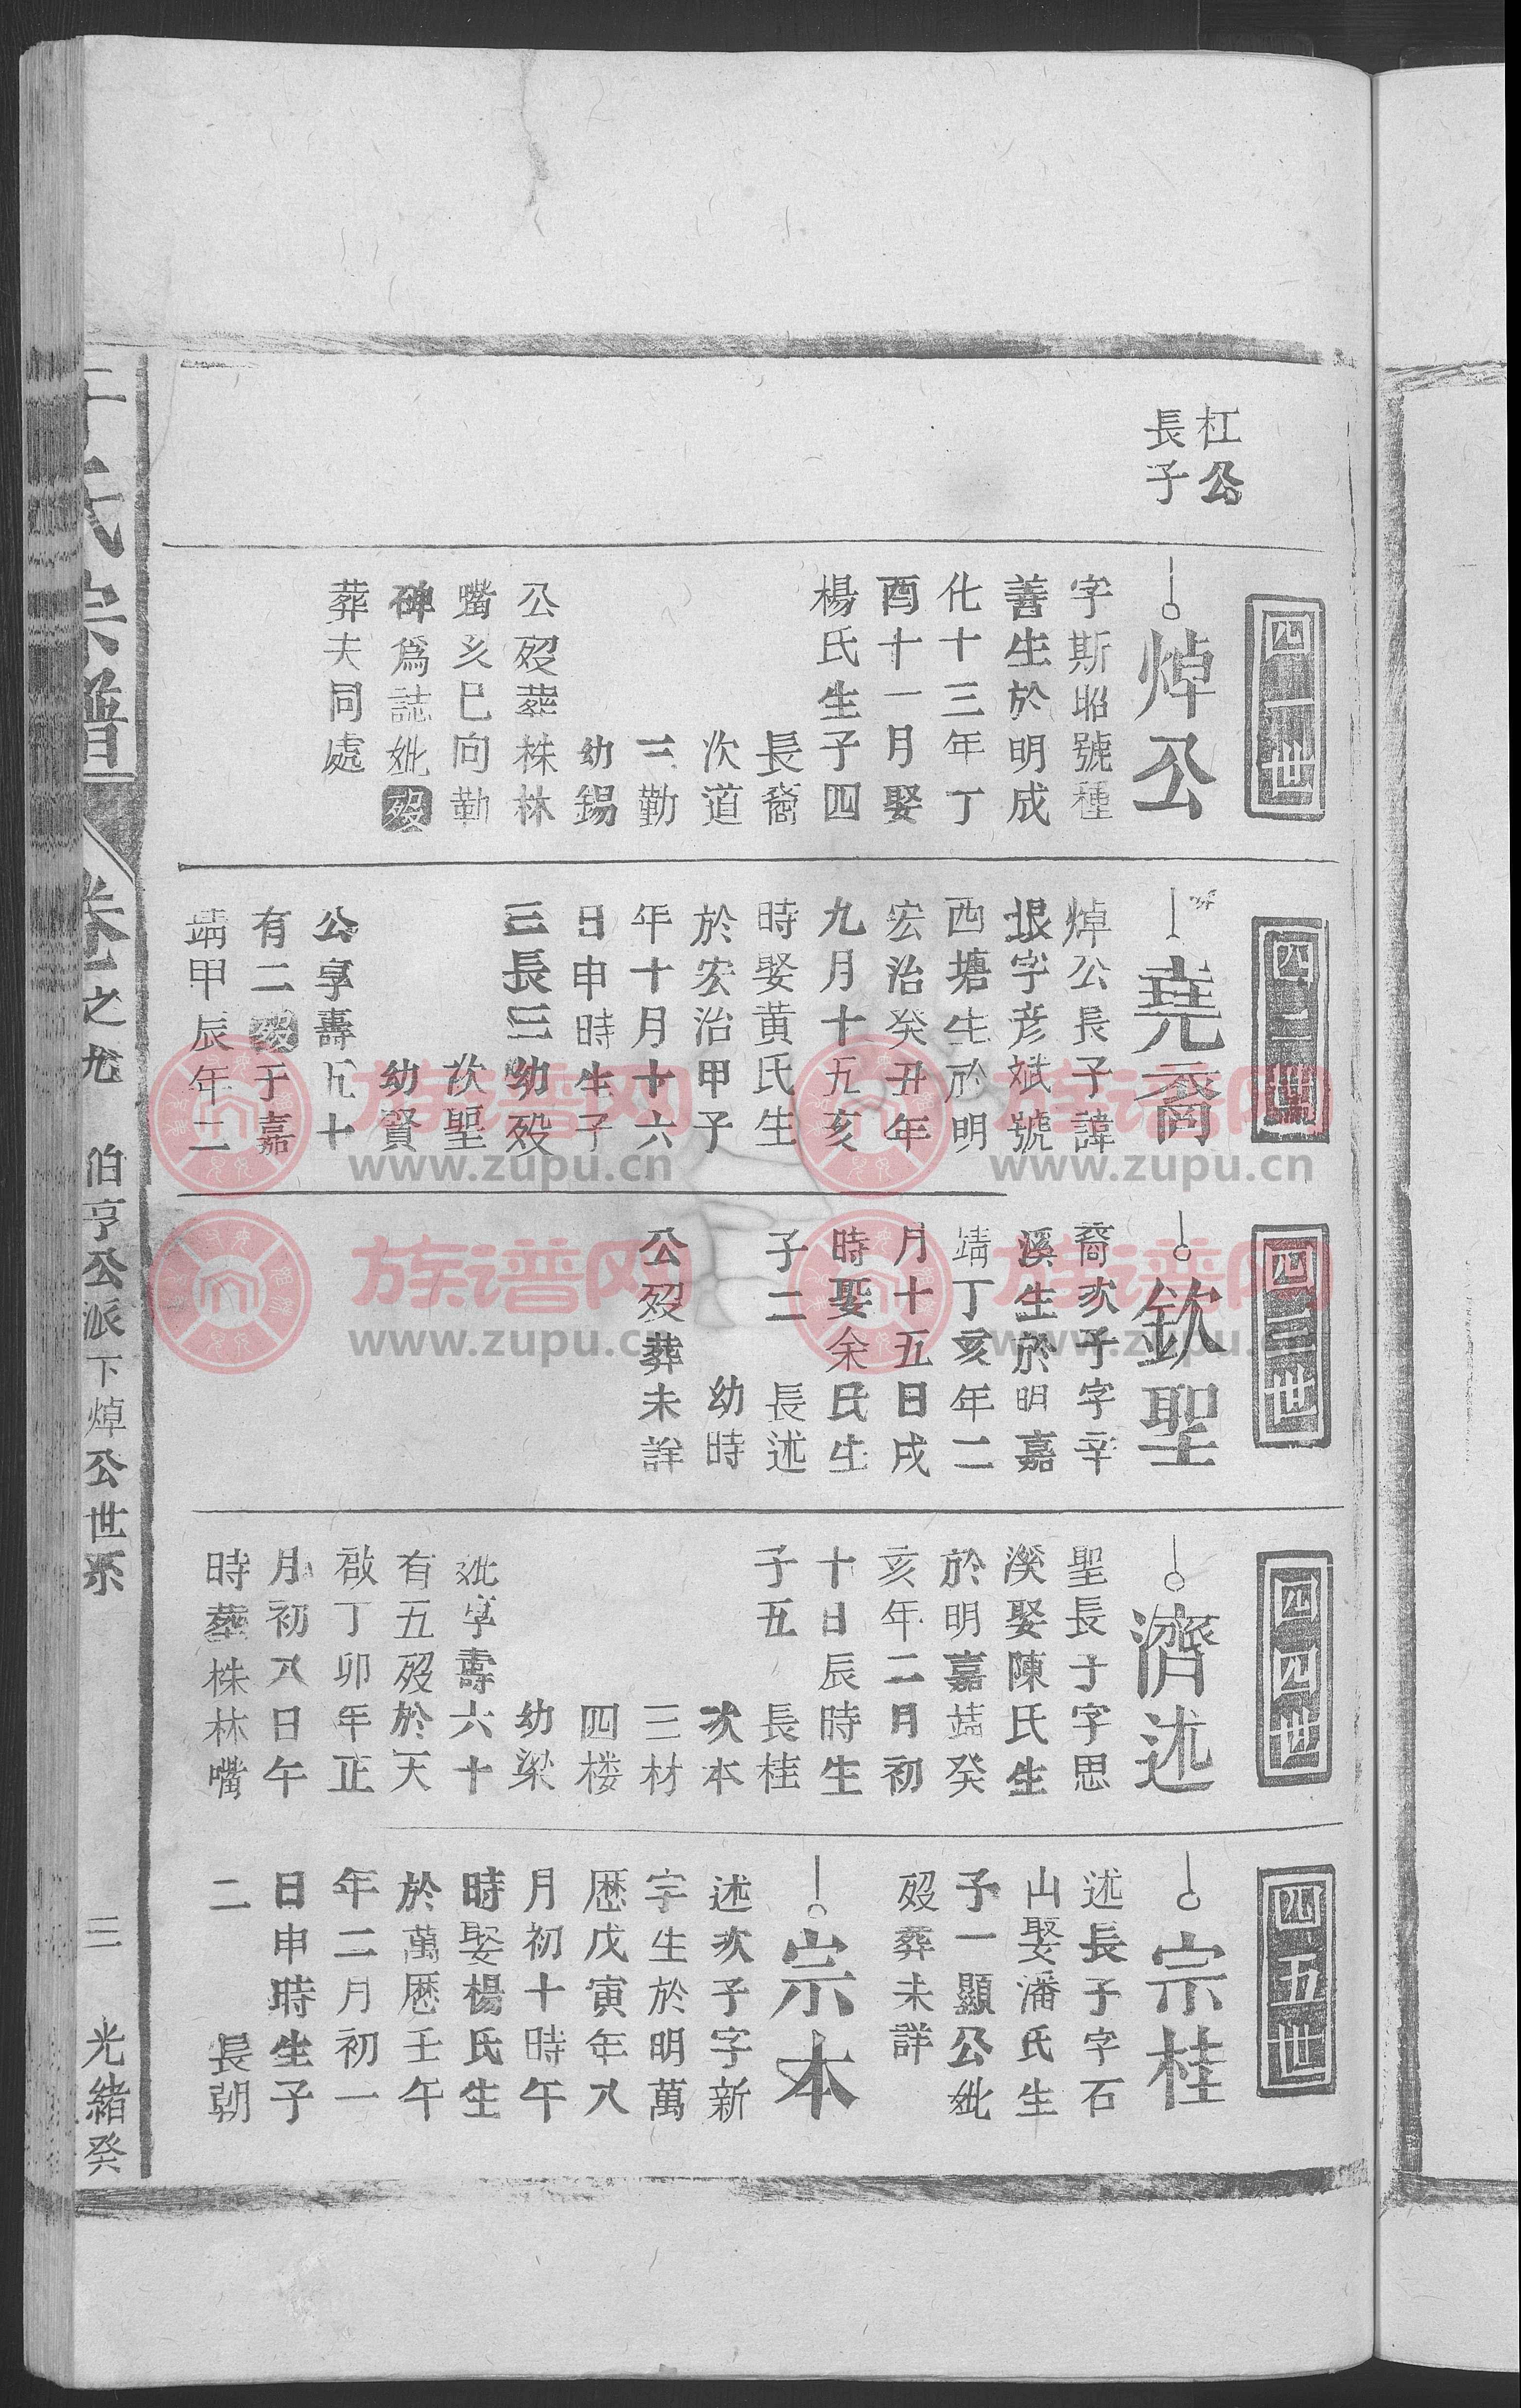 杠公
長子
四一世
焯公
字斯昭號種
善生於明成
化十三年丁
酉十一月娶
楊氏生子四
長裔
次道
三勤
幼錫
公歿葬株林
嘴亥巳向勒
碑爲誌妣歿
葬夫同處
四二世
堯裔
焯公長子諱
垠字彦斌號
西塘生於明
宏治癸丑年
九月十五亥
時娶黄氏生
於宏治甲子
年十月十六
日申時生子
三長三幼殁
次聖
幼賢
公享壽五十
有二歿于嘉
靖甲辰年二
四三世
欽聖
裔次子字辛
溪生於明嘉
靖丁亥年二
月十五日戌
時娶余氏生
子二
長述
幼時
公歿葬未詳
四四世
濟述
聖長子字思
渓娶陳氏生
於明嘉靖癸
亥年二月初
十日辰時生
子五
長桂
次本
三材
四楼
幼梁
妣享壽六十
有五歿於天
啟丁卯年正
月初八日午
時葬株林嘴
四五世
宗桂
述長子字石
山娶潘氏生
子一顯公妣
歿葬未詳
宗本
述次子字新
宇生於明萬
歷戊寅年八
月初十時午
時娶楊氏生
於萬歷壬午
年二月初一
日申時生子
二
長朝
氏宗譜
卷之九
伯亨公派下焯公世系
三
光緒癸
族谱网
www.zupu.cn
族谱网
www.zupu.cn
族谱网
www.zupu.cn
族谱网
www.zupu.cn